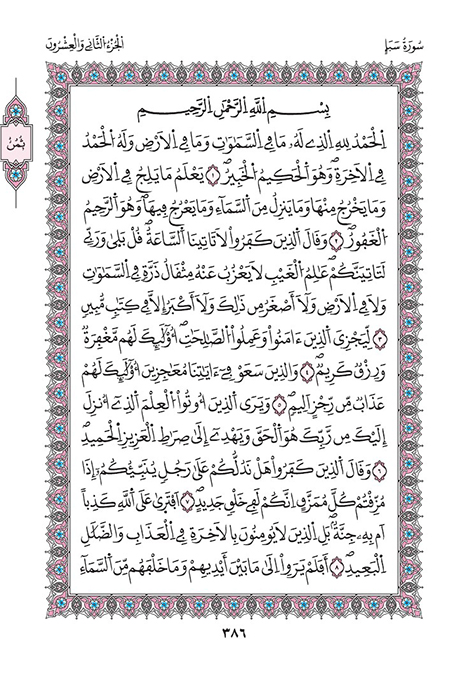 سُورَةُ سَبَإٍ
اَلْجُزْءُ الثَّانِي وَالْعِشْرُونَ
ثُمُنٌ
بِسْمِ اِللَّهِ اِلرَّحْمَٰنِ اِلرَّحِيمِ
اِلْحَمْدُ لِلهِ اِلذِے لَهُۥ مَا فِے اِلسَّمَٰوَٰتِ وَمَا فِے اِلَارْضِ وَلَهُ اُلْحَمْدُ
فِے اِلَاخِرَةِۖ وَهُوَ اَلْحَكِيمُ اُلْخَبِيرُۖ ١ يَعْلَمُ مَا يَلِجُ فِے اِلَارْضِ
وَمَا يَخْرُجُ مِنْهَا وَمَا يَنزِلُ مِنَ اَلسَّمَآءِ وَمَا يَعْرُجُ فِيهَاۖ وَهُوَ اَلرَّحِيمُ
اُلْغَفُورُۖ ٢ وَقَالَ اَلذِينَ كَفَرُواْ لَا تَاتِينَا اَلسَّاعَةُۖ قُلْ بَلَىٰ وَرَبِّے
لَتَاتِيَنَّكُمْۖ عَٰلِمُ اُلْغَيْبِ لَا يَعْزُبُ عَنْهُ مِثْقَالُ ذَرَّةٖ فِے اِلسَّمَٰوَٰتِ
وَلَا فِے اِلَارْضِ وَلَآ أَصْغَرُ مِن ذَٰلِكَ وَلَآ أَكْبَرُ إِلَّا فِے كِتَٰبٖ مُّبِينٖ
٣ لِّيَجْزِيَ اَلذِينَ ءَامَنُواْ وَعَمِلُواْ اُلصَّٰلِحَٰتِۖ أُوْلَٰٓئِكَ لَهُم مَّغْفِرَةٞ
وَرِزْقٞ كَرِيمٞۖ ٤ وَالذِينَ سَعَوْ فِےٓ ءَايَٰتِنَا مُعَٰجِزِينَ أُوْلَٰٓئِكَ لَهُمْ
عَذَابٞ مِّن رِّجْزٍ اَلِيمٖۖ ٥ وَيَرَى اَلذِينَ أُوتُواْ اُلْعِلْمَ اَلذِےٓ أُنزِلَ
إِلَيْكَ مِن رَّبِّكَ هُوَ اَلْحَقَّ وَيَهْدِےٓ إِلَىٰ صِرَٰطِ اِلْعَزِيزِ اِلْحَمِيدِۖ
٦ وَقَالَ اَلذِينَ كَفَرُواْ هَلْ نَدُلُّكُمْ عَلَىٰ رَجُلٖ يُنَبِّئُكُمُۥٓ إِذَا
مُزِّقْتُمْ كُلَّ مُمَزَّقٍ اِنَّكُمْ لَفِے خَلْقٖ جَدِيدٍۖ ٧ اَفْتَرَىٰ عَلَى اَللَّهِ كَذِباً
اَم بِهِۦ جِنَّةُۢۖ بَلِ اِلذِينَ لَا يُومِنُونَ بِالَاخِرَةِ فِے اِلْعَذَابِ وَالضَّلَٰلِ
اِلْبَعِيدِۖ ٨ أَفَلَمْ يَرَوِاْ اِلَىٰ مَا بَيْنَ أَيْدِيهِمْ وَمَا خَلْفَهُم مِّنَ اَلسَّمَآءِ
٣٨٦